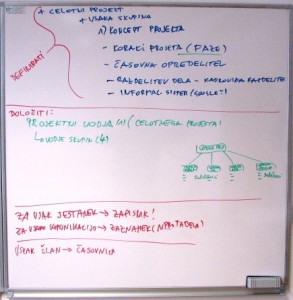 + CELOTNI PROJEKT
+ VSAKA SKUPINA
1) KONCEPT PROJEKTA
- KORAKI PROJETA (FAZE)
- ČASOVNA OPREDELITEV
- RAZDELITEV DELA - KADROVSKA RAZDELITEV
- INFORMAC. SISTEM (GOOGLE!)
DEFINIRATI
DOLOČITI:
PROJEKTNI VODJA (CELOTNEGA PROJEKTA)
VODJE SKUPIN (4)
ZA VSAK SESTANEK → ZAPISNIK!
ZA VSAKO KOMUNIKACIJO → ZAZNAMEK
VSAK ČLAN → ČASOVNICA